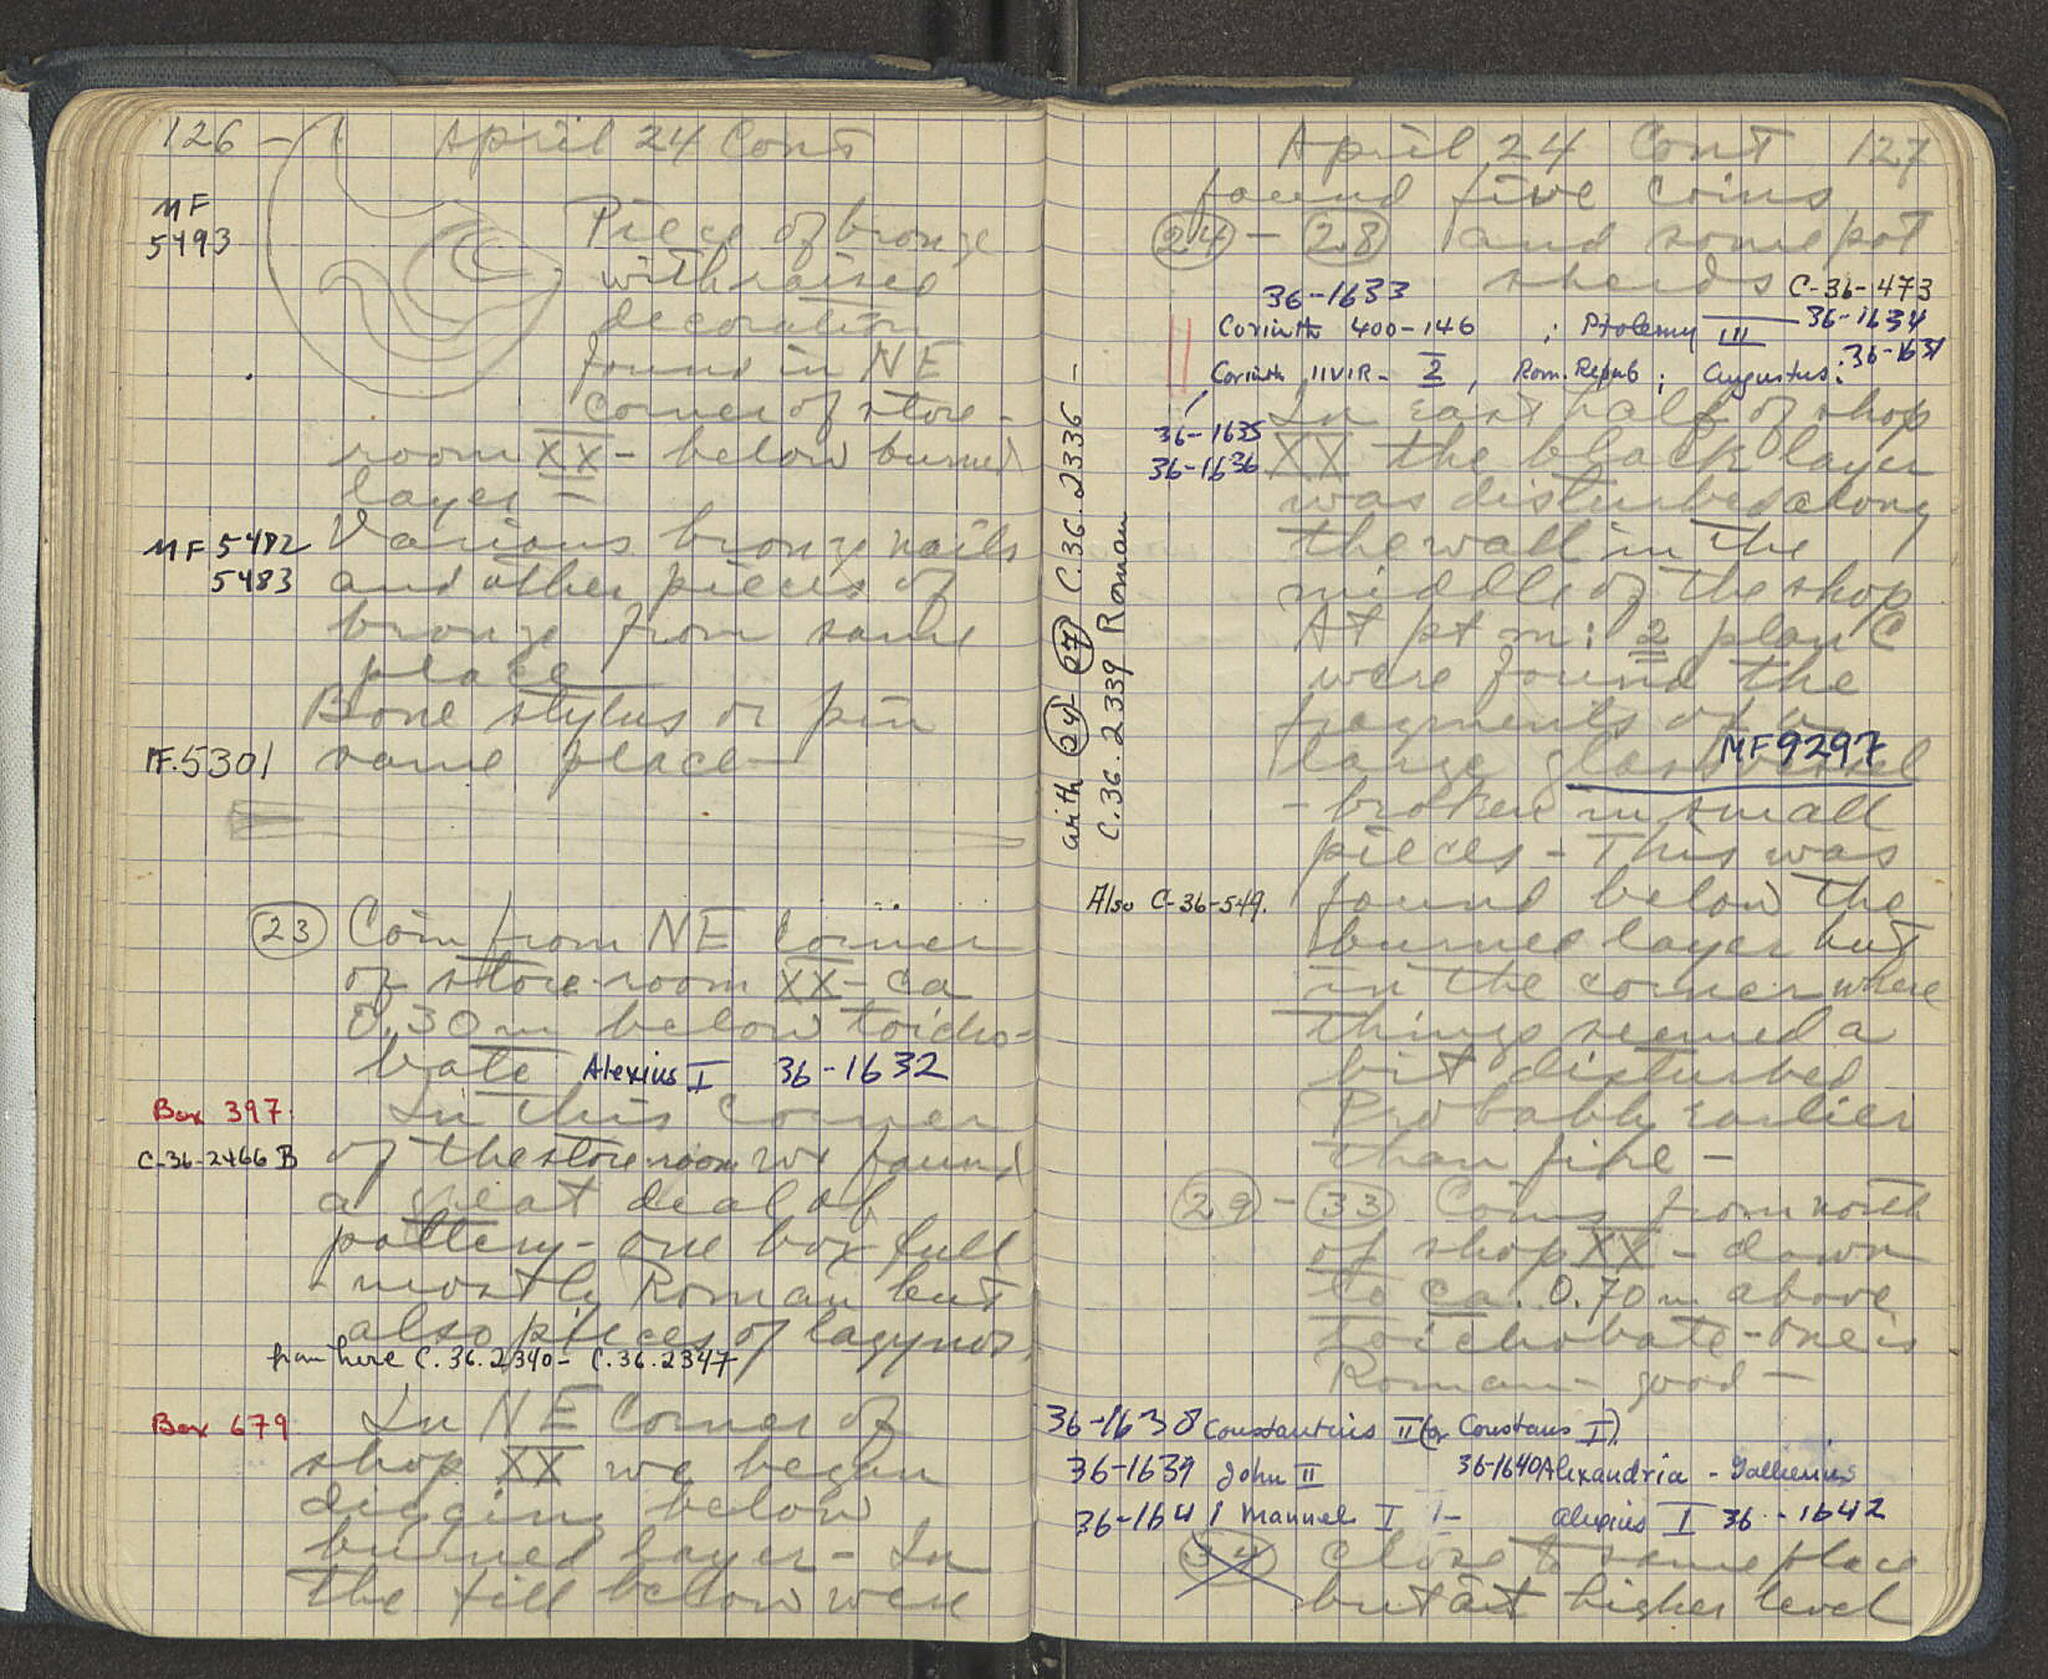 126 - April 24 Cont
MF
5493
Piece of bronze
with raised
decoration
found in NE
corner of store-
room XX - below burned
layer -
MF 5482
5483
Various bronze nails
and other pieces of
bronze from same
place
Bone stylus or pin
MF.5301 same place -
(23) Coin from NE corner
of store-room XX - ca
0.30m below toicho-
bate Alexius I 36-1632
Box 397.
In this corner
C-36-2466 B of the storeroom we found
a great deal of
pottery - one box full
- mostly Roman but
also pieces of lagynos.
from here C.36.2340 - C.36.2347
Box 679 In NE Corner of
shop XX we began
digging below
burned layer - In
the fill below were
April 24 Cont 127
found five coins
(24) - (28) and some pot
sherds C-36-473
36-1633
Corinth 400-146 ; Ptolemy III 36-1634
Corinth IIVIR - 2, Rom. Repub ; Augustus: 36-1637
36-1635
36-1636
In east half of shop
XX the black layer
was disturbed along
the wall in the
middle of the shop
At pt m: 2 plan C
were found the
fragments of a
MF 9297
large glass vessel
- broken in small
pieces - This was
Also C-36-549. found below the
burned layer but
in the corner where
things seemed a
bit disturbed
Probably earlier
than fire -
(29) - (33) Coins from north
of shop XX - down
to ca. 0.70m above
toichobate - one is
Roman - good -
36-1638 Constantius II (or Constans I)
36-1639 John II 36-1640 Alexandria - Gallienus
36-1641 Manuel I 1- Alexius I 36-1642
(34) Close to same place
but at higher level
with (24) - (27) C.36.2336 -
C.36.2339 Roman